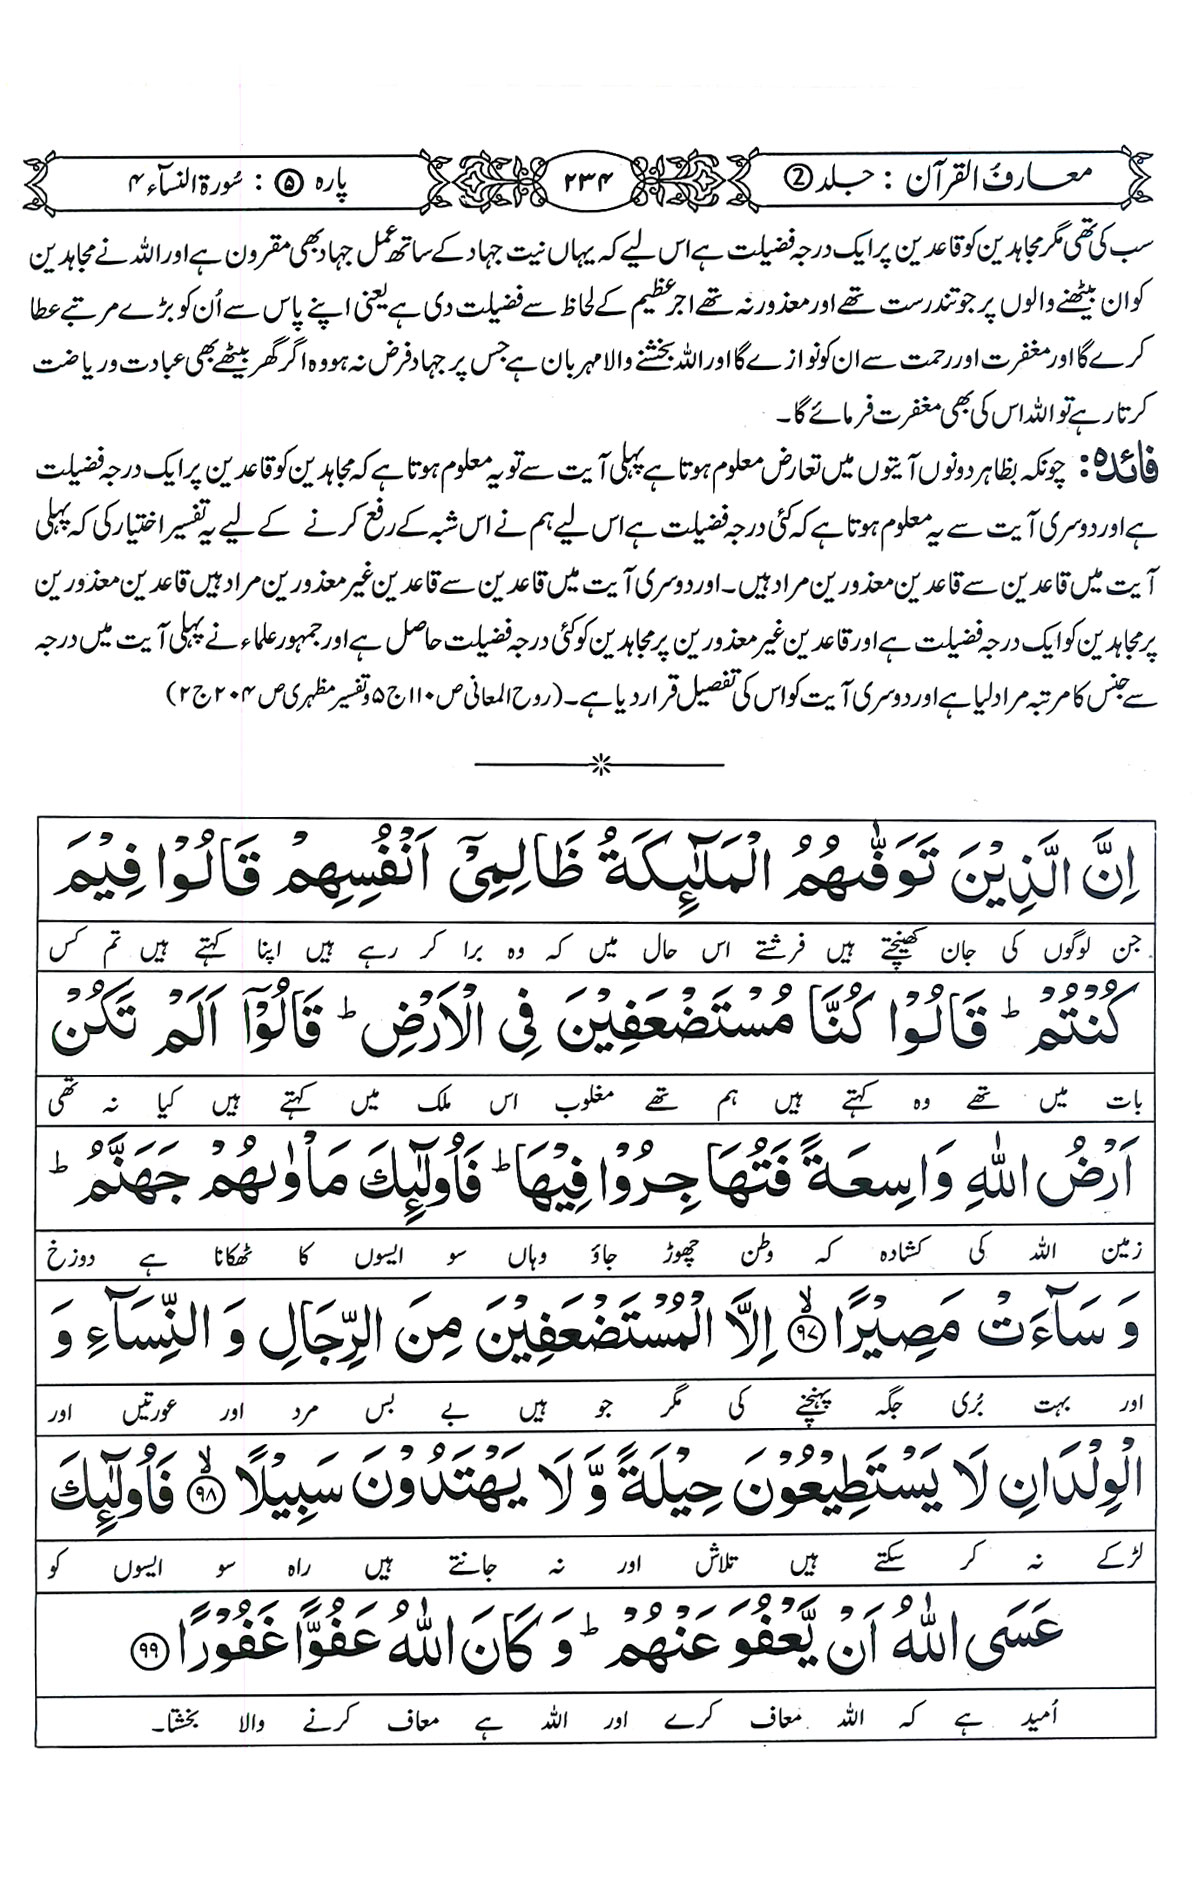 معارفُ القرآن : جلد ②
۲۳۴
پارہ ⑤ : سُورۃ النسآء ۴
سب کی تھی مگر مجاہدین کو قاعدین پر ایک درجہ فضیلت ہے اس لیے کہ یہاں نیت جہاد کے ساتھ عمل جہاد بھی مقرون ہے اور اللہ نے مجاہدین
کو ان بیٹھنے والوں پر جو تندرست تھے اور معذور نہ تھے اجر عظیم کے لحاظ سے فضیلت دی ہے یعنی اپنے پاس سے اُن کو بڑے مرتبے عطا
کرے گا اور مغفرت اور رحمت سے ان کو نوازے گا اور اللہ بخشنے والا مہربان ہے جس پر جہاد فرض نہ ہو وہ اگر گھر بیٹھے بھی عبادت و ریاضت
کرتا رہے تو اللہ اس کی بھی مغفرت فرمائے گا۔
فائدہ: چونکہ بظاہر دونوں آیتوں میں تعارض معلوم ہوتا ہے پہلی آیت سے تو یہ معلوم ہوتا ہے کہ مجاہدین کو قاعدین پر ایک درجہ فضیلت
ہے اور دوسری آیت سے یہ معلوم ہوتا ہے کہ کئی درجہ فضیلت ہے اس لیے ہم نے اس شبہ کے رفع کرنے کے لیے یہ تفسیر اختیار کی کہ پہلی
آیت میں قاعدین سے قاعدین معذورین مراد ہیں۔ اور دوسری آیت میں قاعدین سے قاعدین غیر معذورین مراد ہیں قاعدین معذورین
پر مجاہدین کو ایک درجہ فضیلت ہے اور قاعدین غیر معذورین پر مجاہدین کو کئی درجہ فضیلت حاصل ہے اور جمہور علماء نے پہلی آیت میں درجہ
سے جنس کا مرتبہ مراد لیا ہے اور دوسری آیت کو اس کی تفصیل قرار دیا ہے۔ (روح المعانی ص ۱۱۰ ج ۵ و تفسیر مظہری ص ۲۰۴ ج ۲)
اِنَّ الَّذِيْنَ تَوَفّٰىهُمُ الْمَلٰٓئِكَةُ ظَالِمِيْٓ اَنْفُسِهِمْ قَالُوْا فِيْمَ
جن لوگوں کی جان کھینچتے ہیں فرشتے اس حال میں کہ وہ برا کر رہے ہیں اپنا کہتے ہیں تم کس
كُنْتُمْ ؕ قَالُوْا كُنَّا مُسْتَضْعَفِيْنَ فِي الْاَرْضِ ؕ قَالُوْٓا اَلَمْ تَكُنْ
بات میں تھے وہ کہتے ہیں ہم تھے مغلوب اس ملک میں کہتے ہیں کیا نہ تھی
اَرْضُ اللّٰهِ وَاسِعَةً فَتُهَاجِرُوْا فِيْهَا ؕ فَاُولٰٓئِكَ مَاْوٰىهُمْ جَهَنَّمُ ؕ
زمین اللہ کی کشادہ کہ وطن چھوڑ جاؤ وہاں سو ایسوں کا ٹھکانا ہے دوزخ
وَ سَآءَتْ مَصِيْرًا ۙ﴿۹۷﴾ اِلَّا الْمُسْتَضْعَفِيْنَ مِنَ الرِّجَالِ وَ النِّسَآءِ وَ
اور بہت بُری جگہ پہنچنے کی مگر جو ہیں بے بس مرد اور عورتیں اور
الْوِلْدَانِ لَا يَسْتَطِيْعُوْنَ حِيْلَةً وَّ لَا يَهْتَدُوْنَ سَبِيْلًا ۙ﴿۹۸﴾ فَاُولٰٓئِكَ
لڑکے نہ کر سکتے ہیں تلاش اور نہ جانتے ہیں راہ سو ایسوں کو
عَسَى اللّٰهُ اَنْ يَّعْفُوَ عَنْهُمْ ؕ وَ كَانَ اللّٰهُ عَفُوًّا غَفُوْرًا ﴿۹۹﴾
اُمید ہے کہ اللہ معاف کرے اور اللہ ہے معاف کرنے والا بخشتا۔